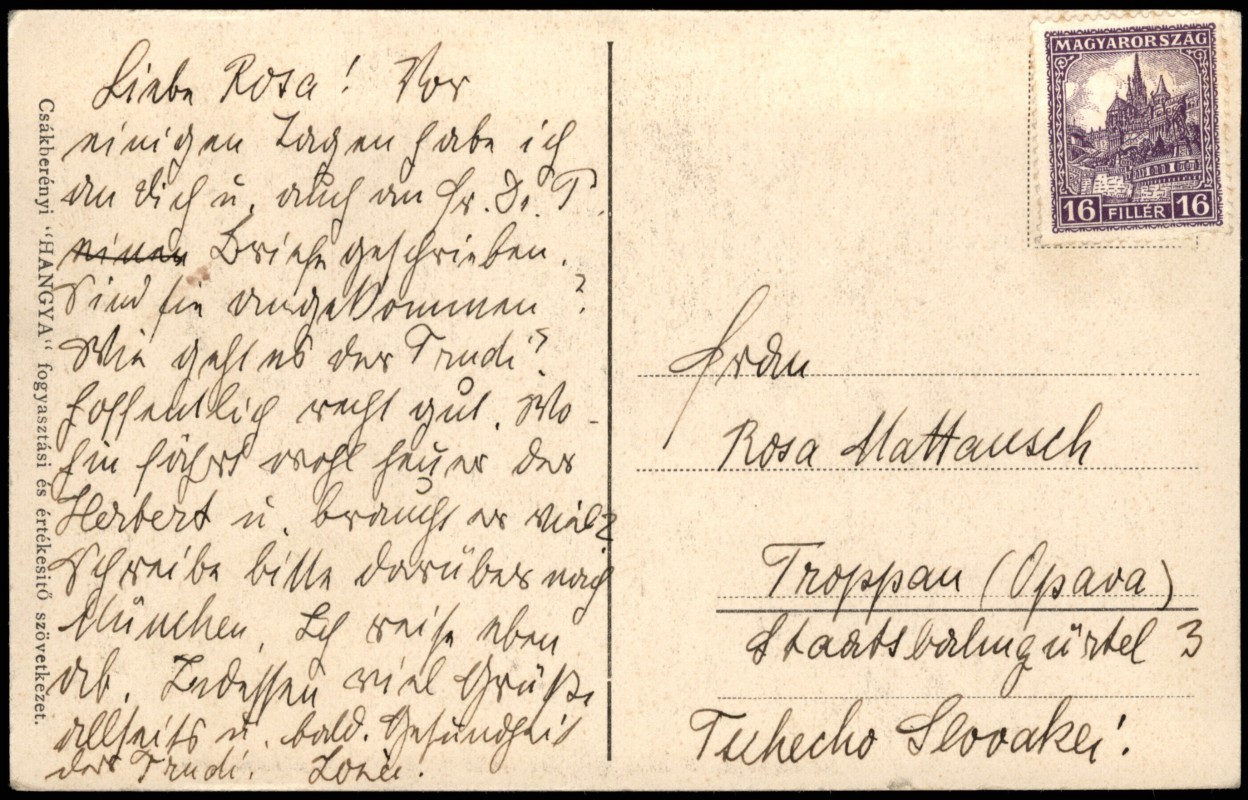 Liebe Rosa! Vor
einigen Tagen habe ich
an Dich u. auch an Fr. Dr. T.
Briefe geschrieben.
Sind sie angekommen?
Wie geht es der Trudi?
Hoffentlich recht gut. Wo-
hin fährt wohl heuer der
Herbert u. braucht er viel?
Schreibe bitte darüber nach
München. Ich reise eben
ab. Indessen viel Grüße
allseits u. bald. Gesundheit
der Trudi.
Csákberényi "HANGYA" fogyasztási és értékesitő szövetkezet.
MAGYARORSZÁG
16 FILLÉR 16
Frau
Rosa Mattausch
Troppau (Opava)
Staatsbahngürtel 3
Tschecho Slovakei!